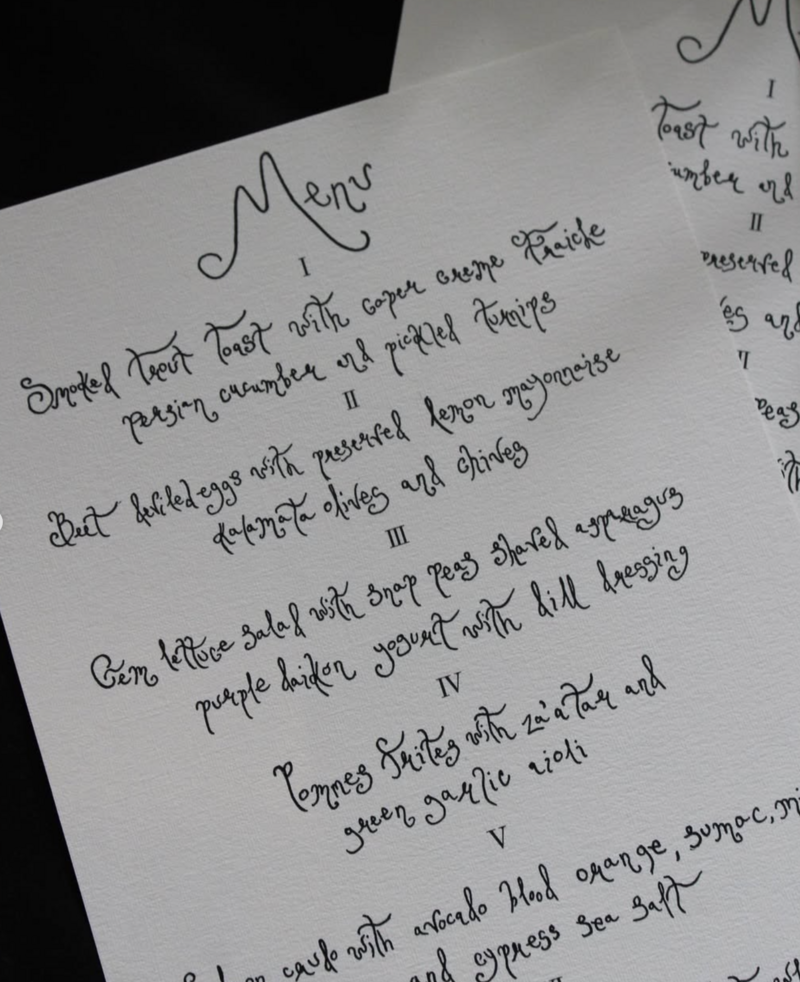 Menu
I
Smoked trout toast with caper creme fraiche
persian cucumber and pickled turnips
II
Beet deviled eggs with preserved lemon mayonnaise
kalamata olives and chives
III
Gem lettuce salad with snap peas shaved asparagus
purple daikon yogurt with dill dressing
IV
Pommes frites with za'atar and
green garlic aioli
V
crudo with avocado blood orange, sumac,
and cypress sea salt
I
Toast with
and
II
preserved
and
peas